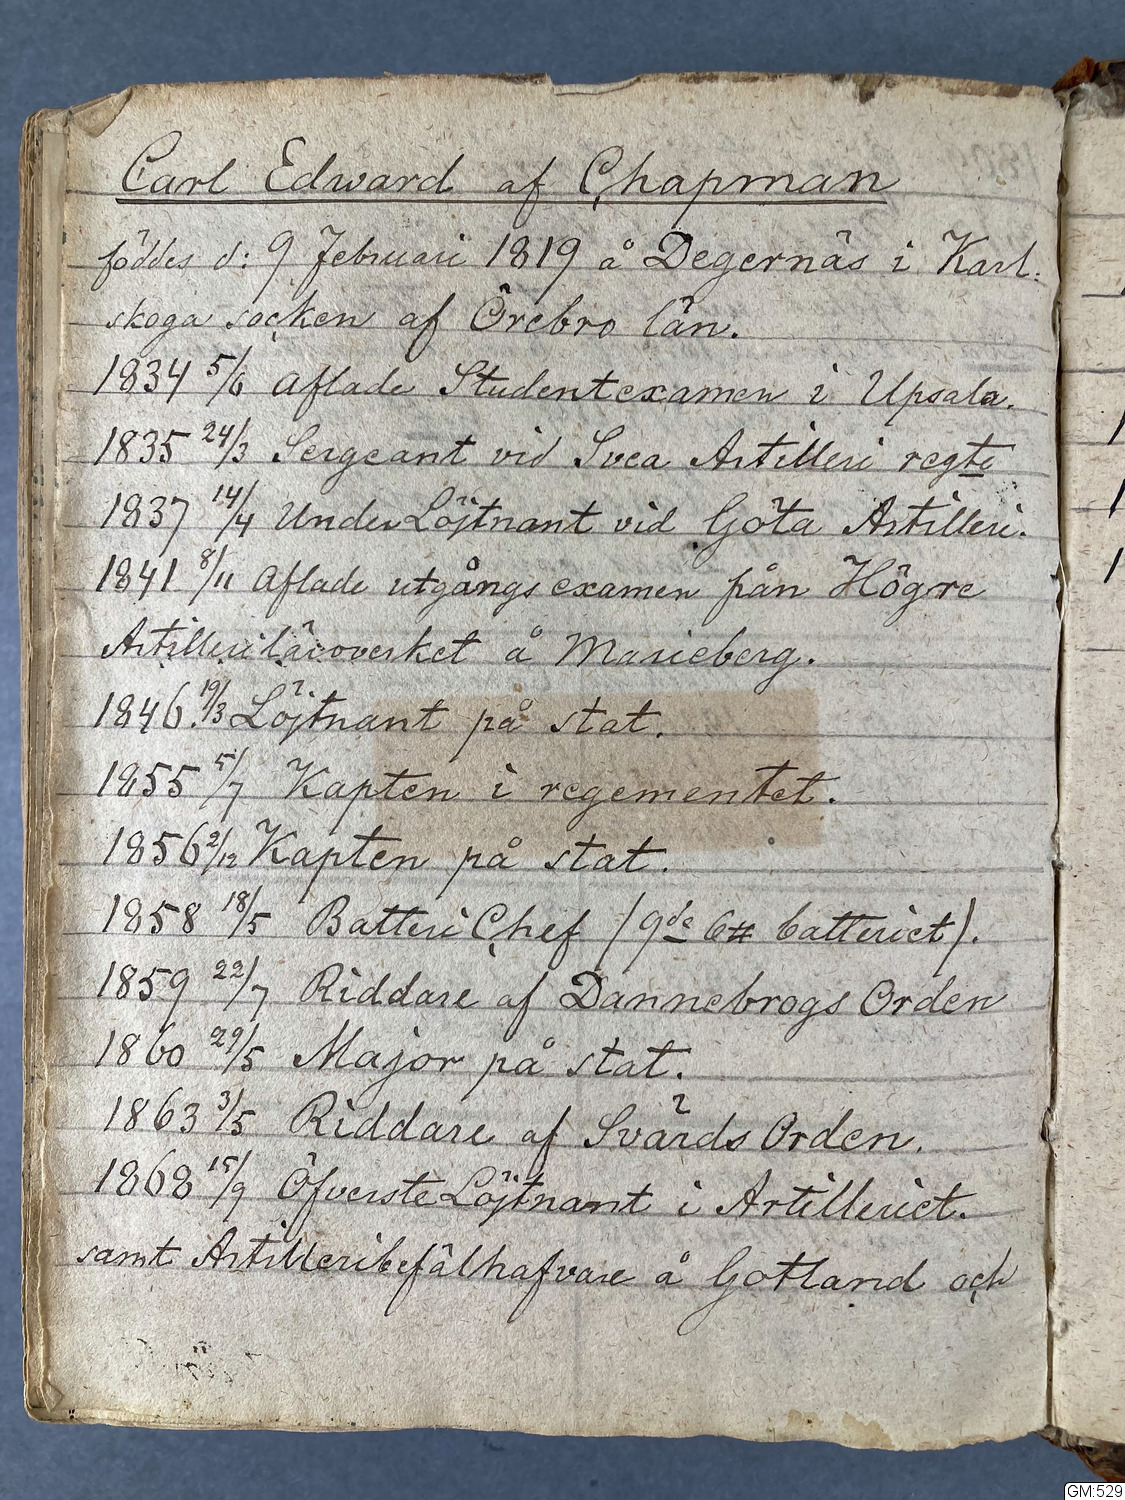 Carl Edward af Chapman
föddes d: 9 Februari 1819 å Degernäs i Karl-
skoga socken af Örebro län.
1834 5/6 Aflade Studentexamen i Upsala.
1835 24/3 Sergeant vid Svea Artilleri regte
1837 14/4 UnderLöjtnant vid Göta Artilleri.
1841 8/11 Aflade utgångsexamen från Högre
Artilleriläroverket å Marieberg.
1846. 19/3 Löjtnant på stat.
1855 5/7 Kapten i regementet.
1856 2/12 Kapten på stat.
1858 18/5 BatteriChef (9de 6# batteriet).
1859 22/7 Riddare af Dannebrogs Orden
1860 29/5 Major på stat.
1863 3/5 Riddare af Svärds Orden.
1868 15/9 ÖfversteLöjtnant i Artilleriet.
samt Artilleribefälhafvare å Gotland och
GM:529